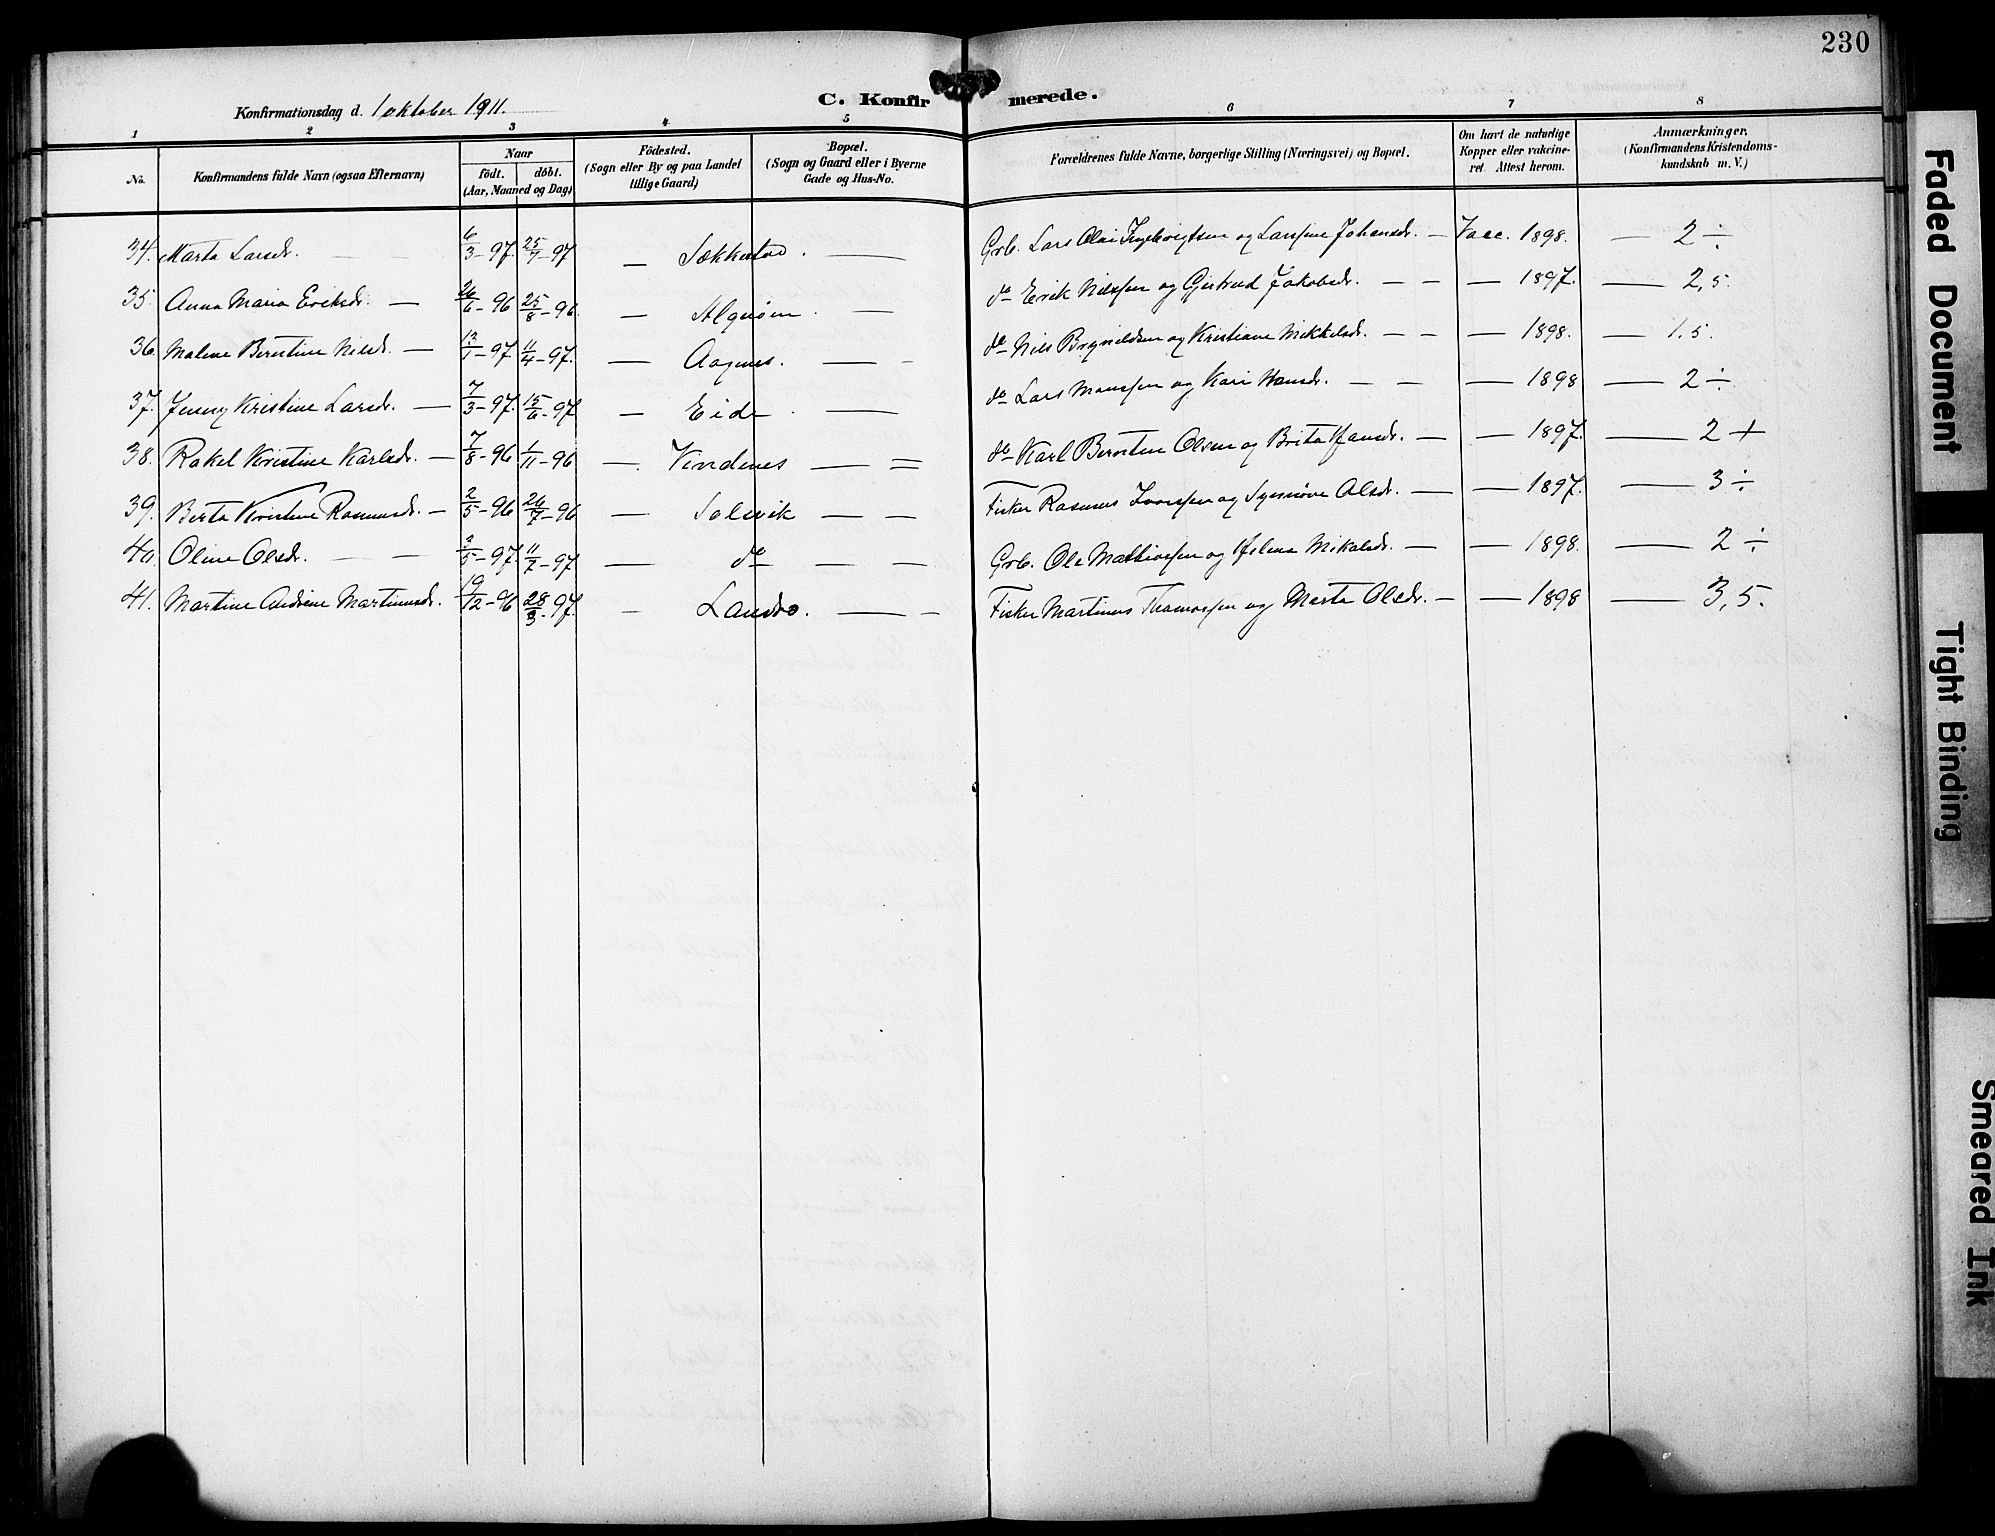 230
C. Konfirmerede.
Konfirmationsdag d. 1 oktober 1911.
1 2 3 4 5 6 7 8
No. Konfirmandens fulde Navn (ogsaa Efternavn) Naar födt. döbt. (Aar, Maaned og Dag) Födested. (Sogn eller By og paa Landet tillige Gaard) Bopæl. (Sogn og Gaard eller i Byerne Gade og Hus-No. Forældrenes fulde Navne, borgerlige Stilling (Næringsvei) og Bopæl. Om havt de naturlige Kopper eller vakcineret. Attest herom. Anmærkninger. (Konfirmandens Kristendomskundskab m. V.)
34. Marta Larsdr. 6/3-97. 25/7-97 — Sækkestad. — Grb. Lars Olai Ingebrigtsen og Larsine Johansdr. — Vacc. 1898. — 2 ÷
35. Anna Maria Eriksdr. — 26/6-96 25/8-96. — Algrøen. — do Erik Nilssen og Gjertrud Jakobsdr. — — — 1897. — 2,5.
36. Malene Berntine Nilsd. — 12/1-97. 11/4-97. — Aagnes. — do Nils Brynildsen og Kristiane Mikkelsdr. — — — 1898. — 1.5.
37. Jenny Kristine Larsdr. — 7/3-97. 15/6-97 — Eide — do Lars Monssen og Kari Hansdr. — — — 1898 — 2 ÷
38. Rakel Kristine Karlsdr. — 7/8-96 1/11-96 — Vindenes — = do Karl Berntin Olsen og Brita Hansdr. — — 1897. — 2 +
39. Berta Kristine Rasmusdr. — 2/5-96 26/7-96 — Solsvik — — Fisker Rasmus Ivarssen og Synnøve Olsdr. — — 1897. — 3 ÷
40. Oline Olsdr. — — 2/5-97. 11/7-97 — do — — Grb. Ole Mathiassen og Helena Mikalsdr. — — 1898. — 2 ÷
41. Martine Andrine Martinusdr. 19/12-96 28/3-97. — Landro. — — Fisker Martinus Thomassen og Marta Olsdr. — — 1898 — 3,5.
Faded Document
Tight Binding
Smeared Ink